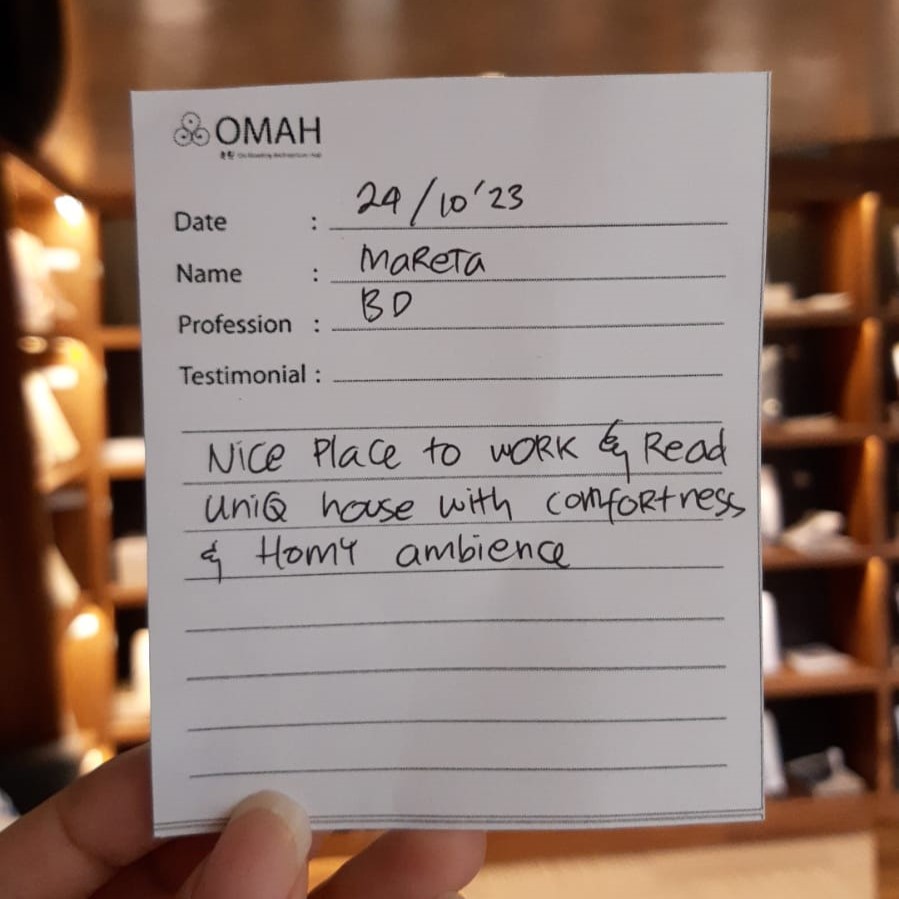 OMAH
Date : 24/10'23
Name : MaReTa
Profession : BD
Testimonial :
Nice Place to woRK & Read
UniQ house with comfoRtness
& HomY ambience